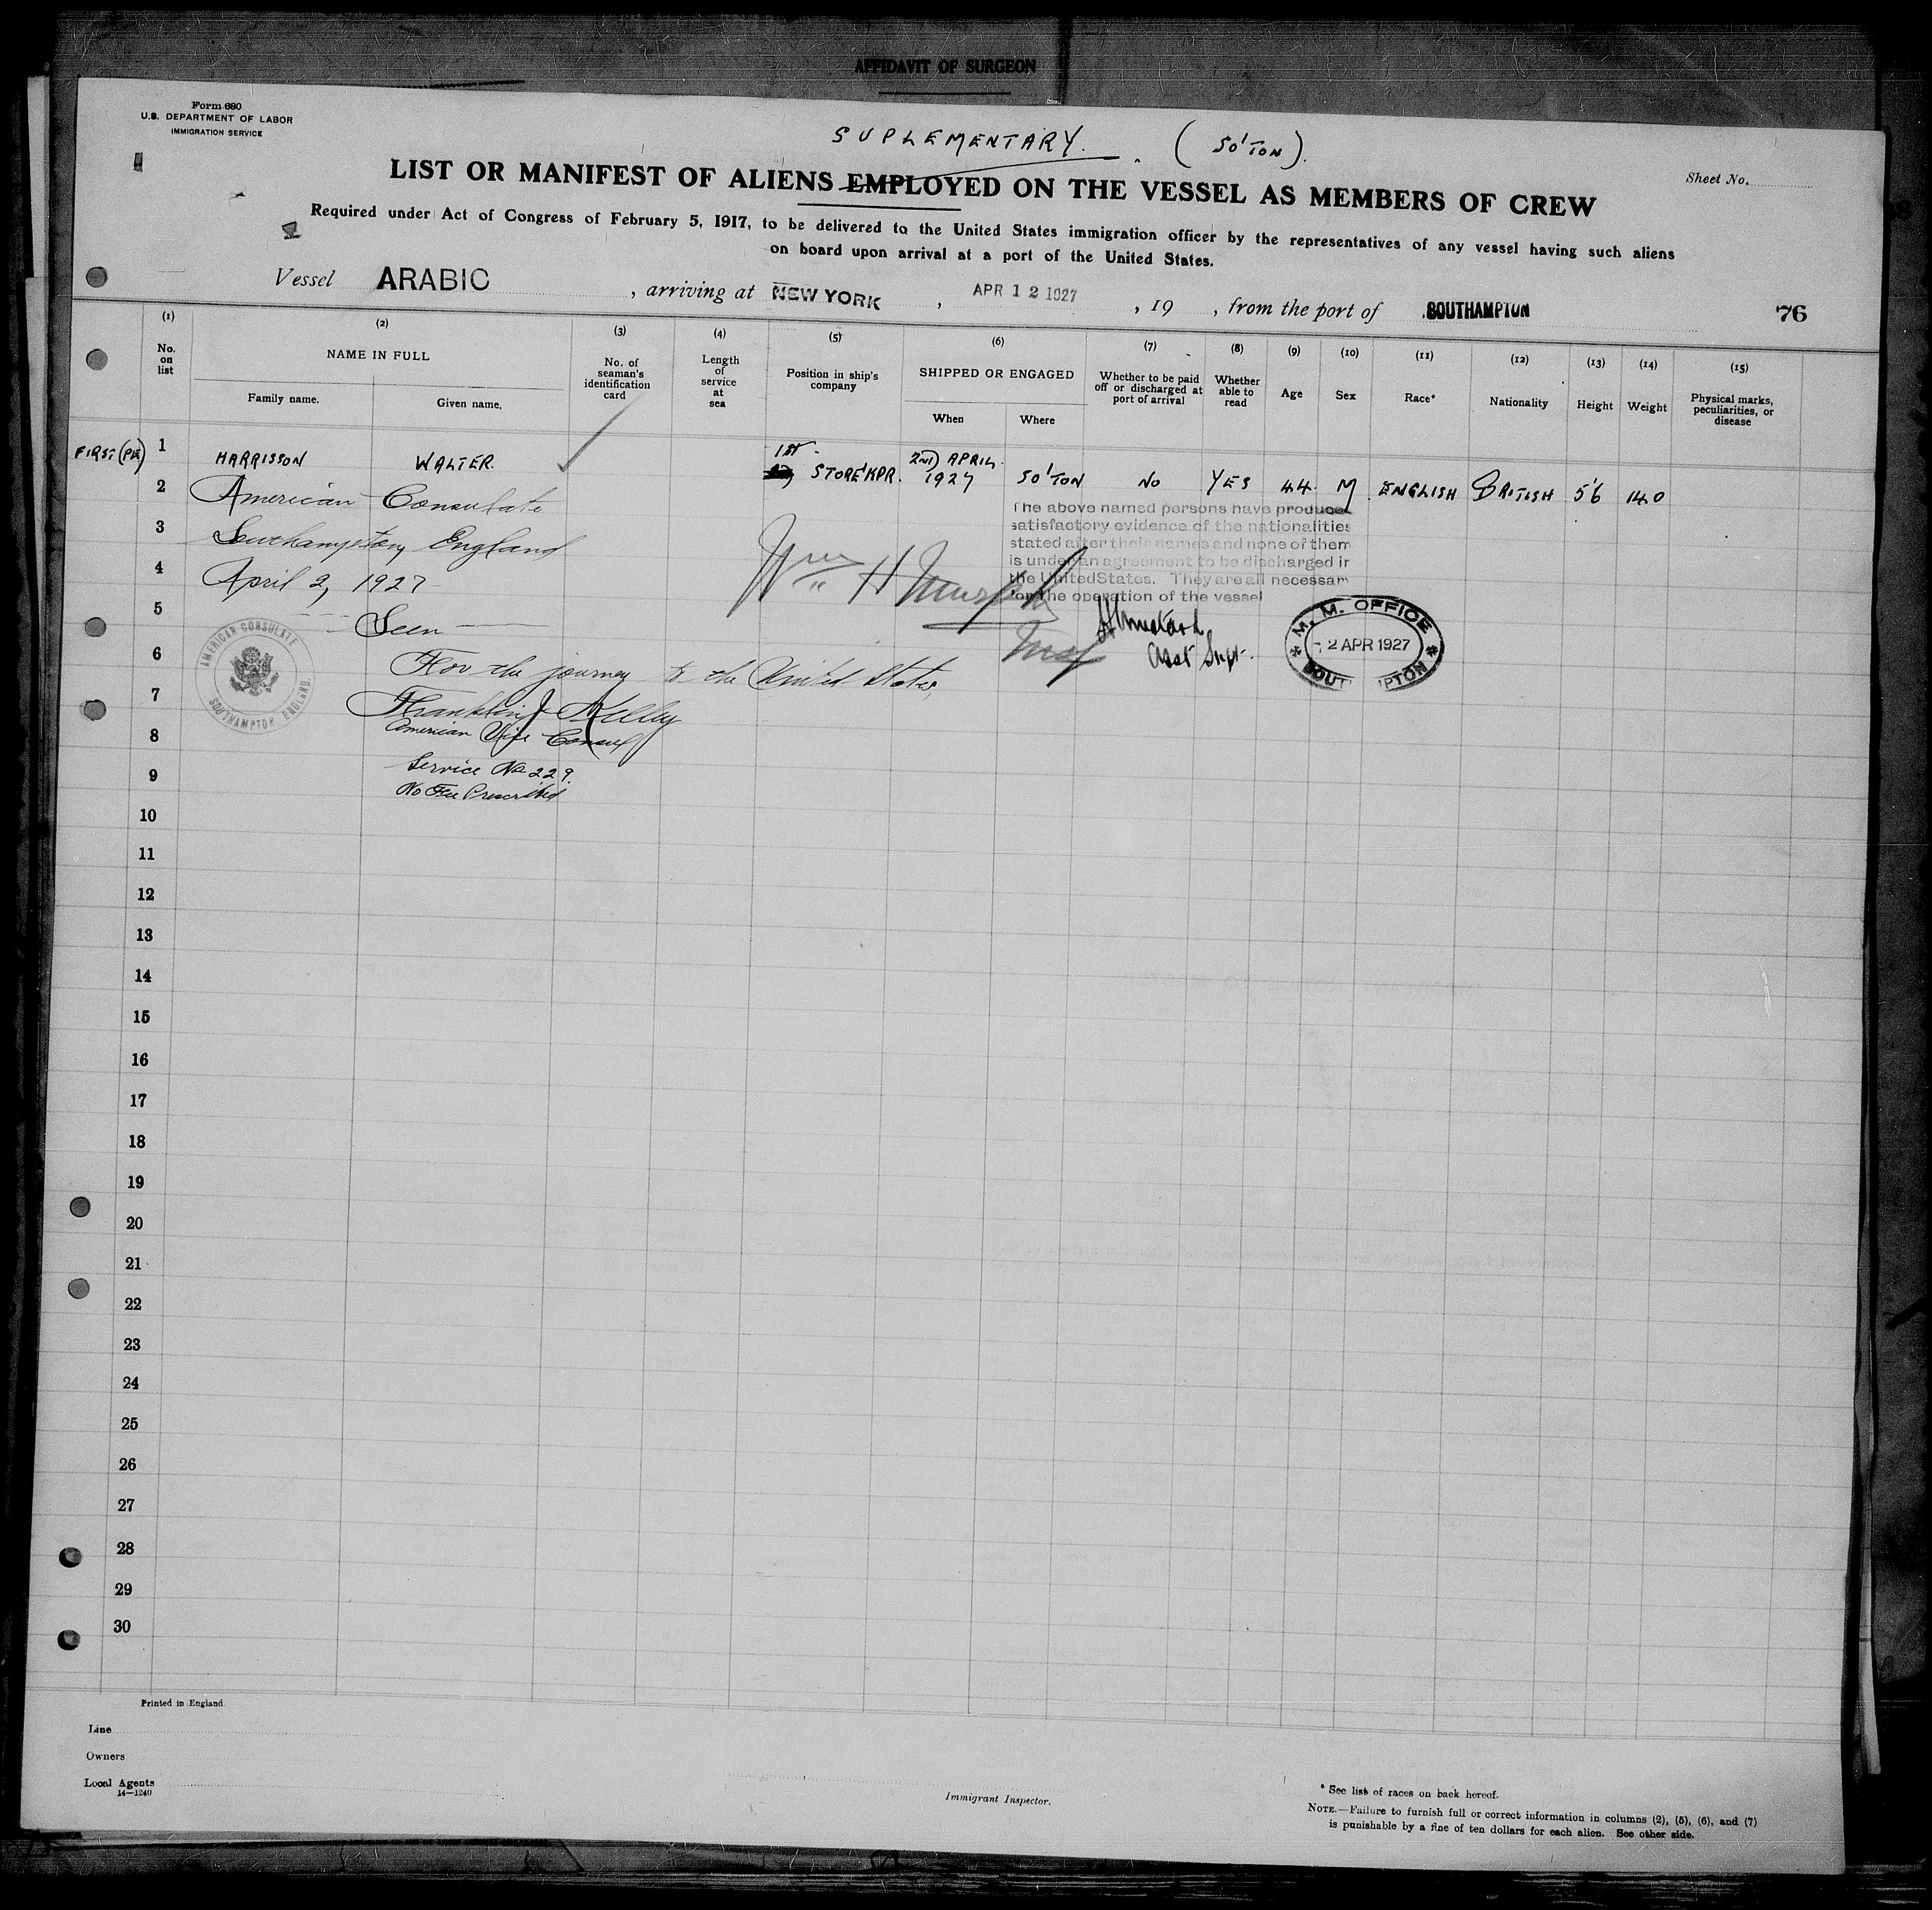 AFFIDAVIT OF SURGEON
Form 680
U.S. DEPARTMENT OF LABOR
IMMIGRATION SERVICE
SUPLEMENTARY. (SO'TON).
LIST OR MANIFEST OF ALIENS EMPLOYED ON THE VESSEL AS MEMBERS OF CREW
Sheet No.
Required under Act of Congress of February 5, 1917, to be delivered to the United States immigration officer by the representatives of any vessel having such aliens
on board upon arrival at a port of the United States.
Vessel ARABIC, arriving at NEW YORK, APR 12 1927, 19 , from the port of SOUTHAMPTON 76
(1) (2) (3) (4) (5) (6) (7) (8) (9) (10) (11) (12) (13) (14) (15)
No. on list
NAME IN FULL
Family name. Given name.
No. of seaman's identification card
Length of service at sea
Position in ship's company
SHIPPED OR ENGAGED
When Where
Whether to be paid off or discharged at port of arrival
Whether able to read
Age
Sex
Race*
Nationality
Height
Weight
Physical marks, peculiarities, or disease
FIRST 1 HARRISSON WALTER. 1ST STORE'KPR. 2ND APRIL 1927 SO'TON NO YES 44 M ENGLISH BRITISH 5'6 140
2 American Consulate
3 Southampton, England
4 April 2, 1927
The above named persons have produced
satisfactory evidence of the nationalities
stated after their names and none of them
is under an agreement to be discharged in
the United States. They are all necessary
for the operation of the vessel
Wm H Murphy
Asst Supt.
M. M. OFFICE
2 APR 1927
5 Seen
AMERICAN CONSULATE
SOUTHAMPTON, ENGLAND.
6 For the journey to the United States,
7 Franklin J Kelley
8 American Vice Consul
9 Service No. 229.
No Fee Prescribed
10
11
12
13
14
15
16
17
18
19
20
21
22
23
24
25
26
27
28
29
30
Printed in England
Line
Owners
Local Agents
14—1240
Immigrant Inspector.
* See list of races on back hereof.
NOTE.—Failure to furnish full or correct information in columns (2), (5), (6), and (7)
is punishable by a fine of ten dollars for each alien. See other side.